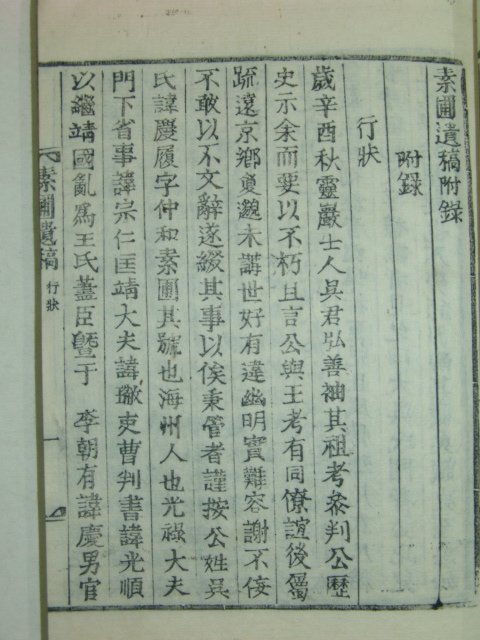 素圃遺稿附錄
附錄
行狀
歲辛酉秋靈巖士人吳君弘善袖其祖考參判公歷
史示余而要以不朽且言公與王考有同僚誼後屬
疏遠京鄉敻邈未講世好有違幽明實難容謝不侫
不敢以不文辭遂綴其事以俟秉管者謹按公姓吳
氏諱慶履字仲和素圃其號也海州人也光祿大夫
門下省事諱宗仁匡靖大夫諱璥吏曹判書諱光順
以繼靖國亂爲王氏藎臣曁于 李朝有諱慶男官
素圃遺稿 行狀 一